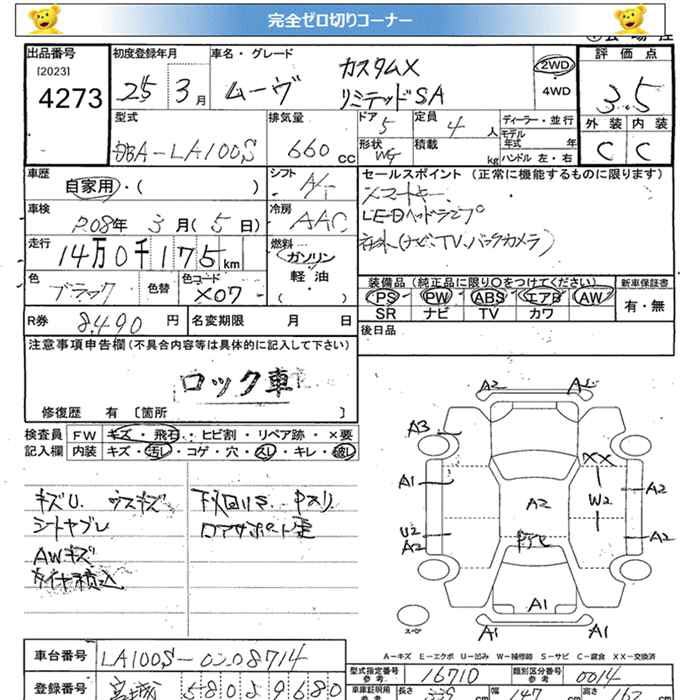 完全ゼロ切りコーナー
出品番号 初度登録年月 車名・グレード 評価点
[2023]
4273
25 3月
ムーヴ カスタムX
リミテッドSA
2WD
4WD
3.5
型式 排気量 ドア 定員 ディーラー・並行
DBA-LA100S 660cc 5 4人
モデル年式 年
外装 内装
形状 積載
WG kg ハンドル 左・右
C C
車歴 シフト セールスポイント (正常に機能するものに限ります)
自家用・( )
スマートキー
車検 冷房
R08年 3月(5日) AAC
LEDヘッドランプ
走行 燃料
14万0千175km
ガソリン
軽・油
( )
社外(ナビ、TV、バックカメラ)
色 色替 色コード
ブラック X07
装備品 (純正品に限り○をつけてください) 新車保証書
PS PW ABS エアB AW
SR ナビ TV カワ
有・無
R券 8,490円 名変期限 月 日
後日品
注意事項申告欄 (不具合内容等は具体的に記入して下さい)
ロック車
修復歴 有 〔箇所 〕
検査員 FW キズ・飛石・ヒビ割・リペア跡・×要
記入欄 内装 キズ・汚し・コゲ・穴・スレ・キレ・破レ
キズU. ウスキズ
シートヤブレ
AWキズ
タイヤ積込
下回りサ. 
A2
A3
A1
U2
A2
A2
XX
W2
A2
A2
A1
A1
A1
スペア
A−キズ E−エクボ U−凹み W−補修跡 S−サビ C−腐食 XX−交換済
車台番号 LA100S-0208714
型式指定番号 16710 類別区分番号 0014
登録番号 宮城 580
車庫証明用参考 長さ cm 幅 147 cm 高さ cm